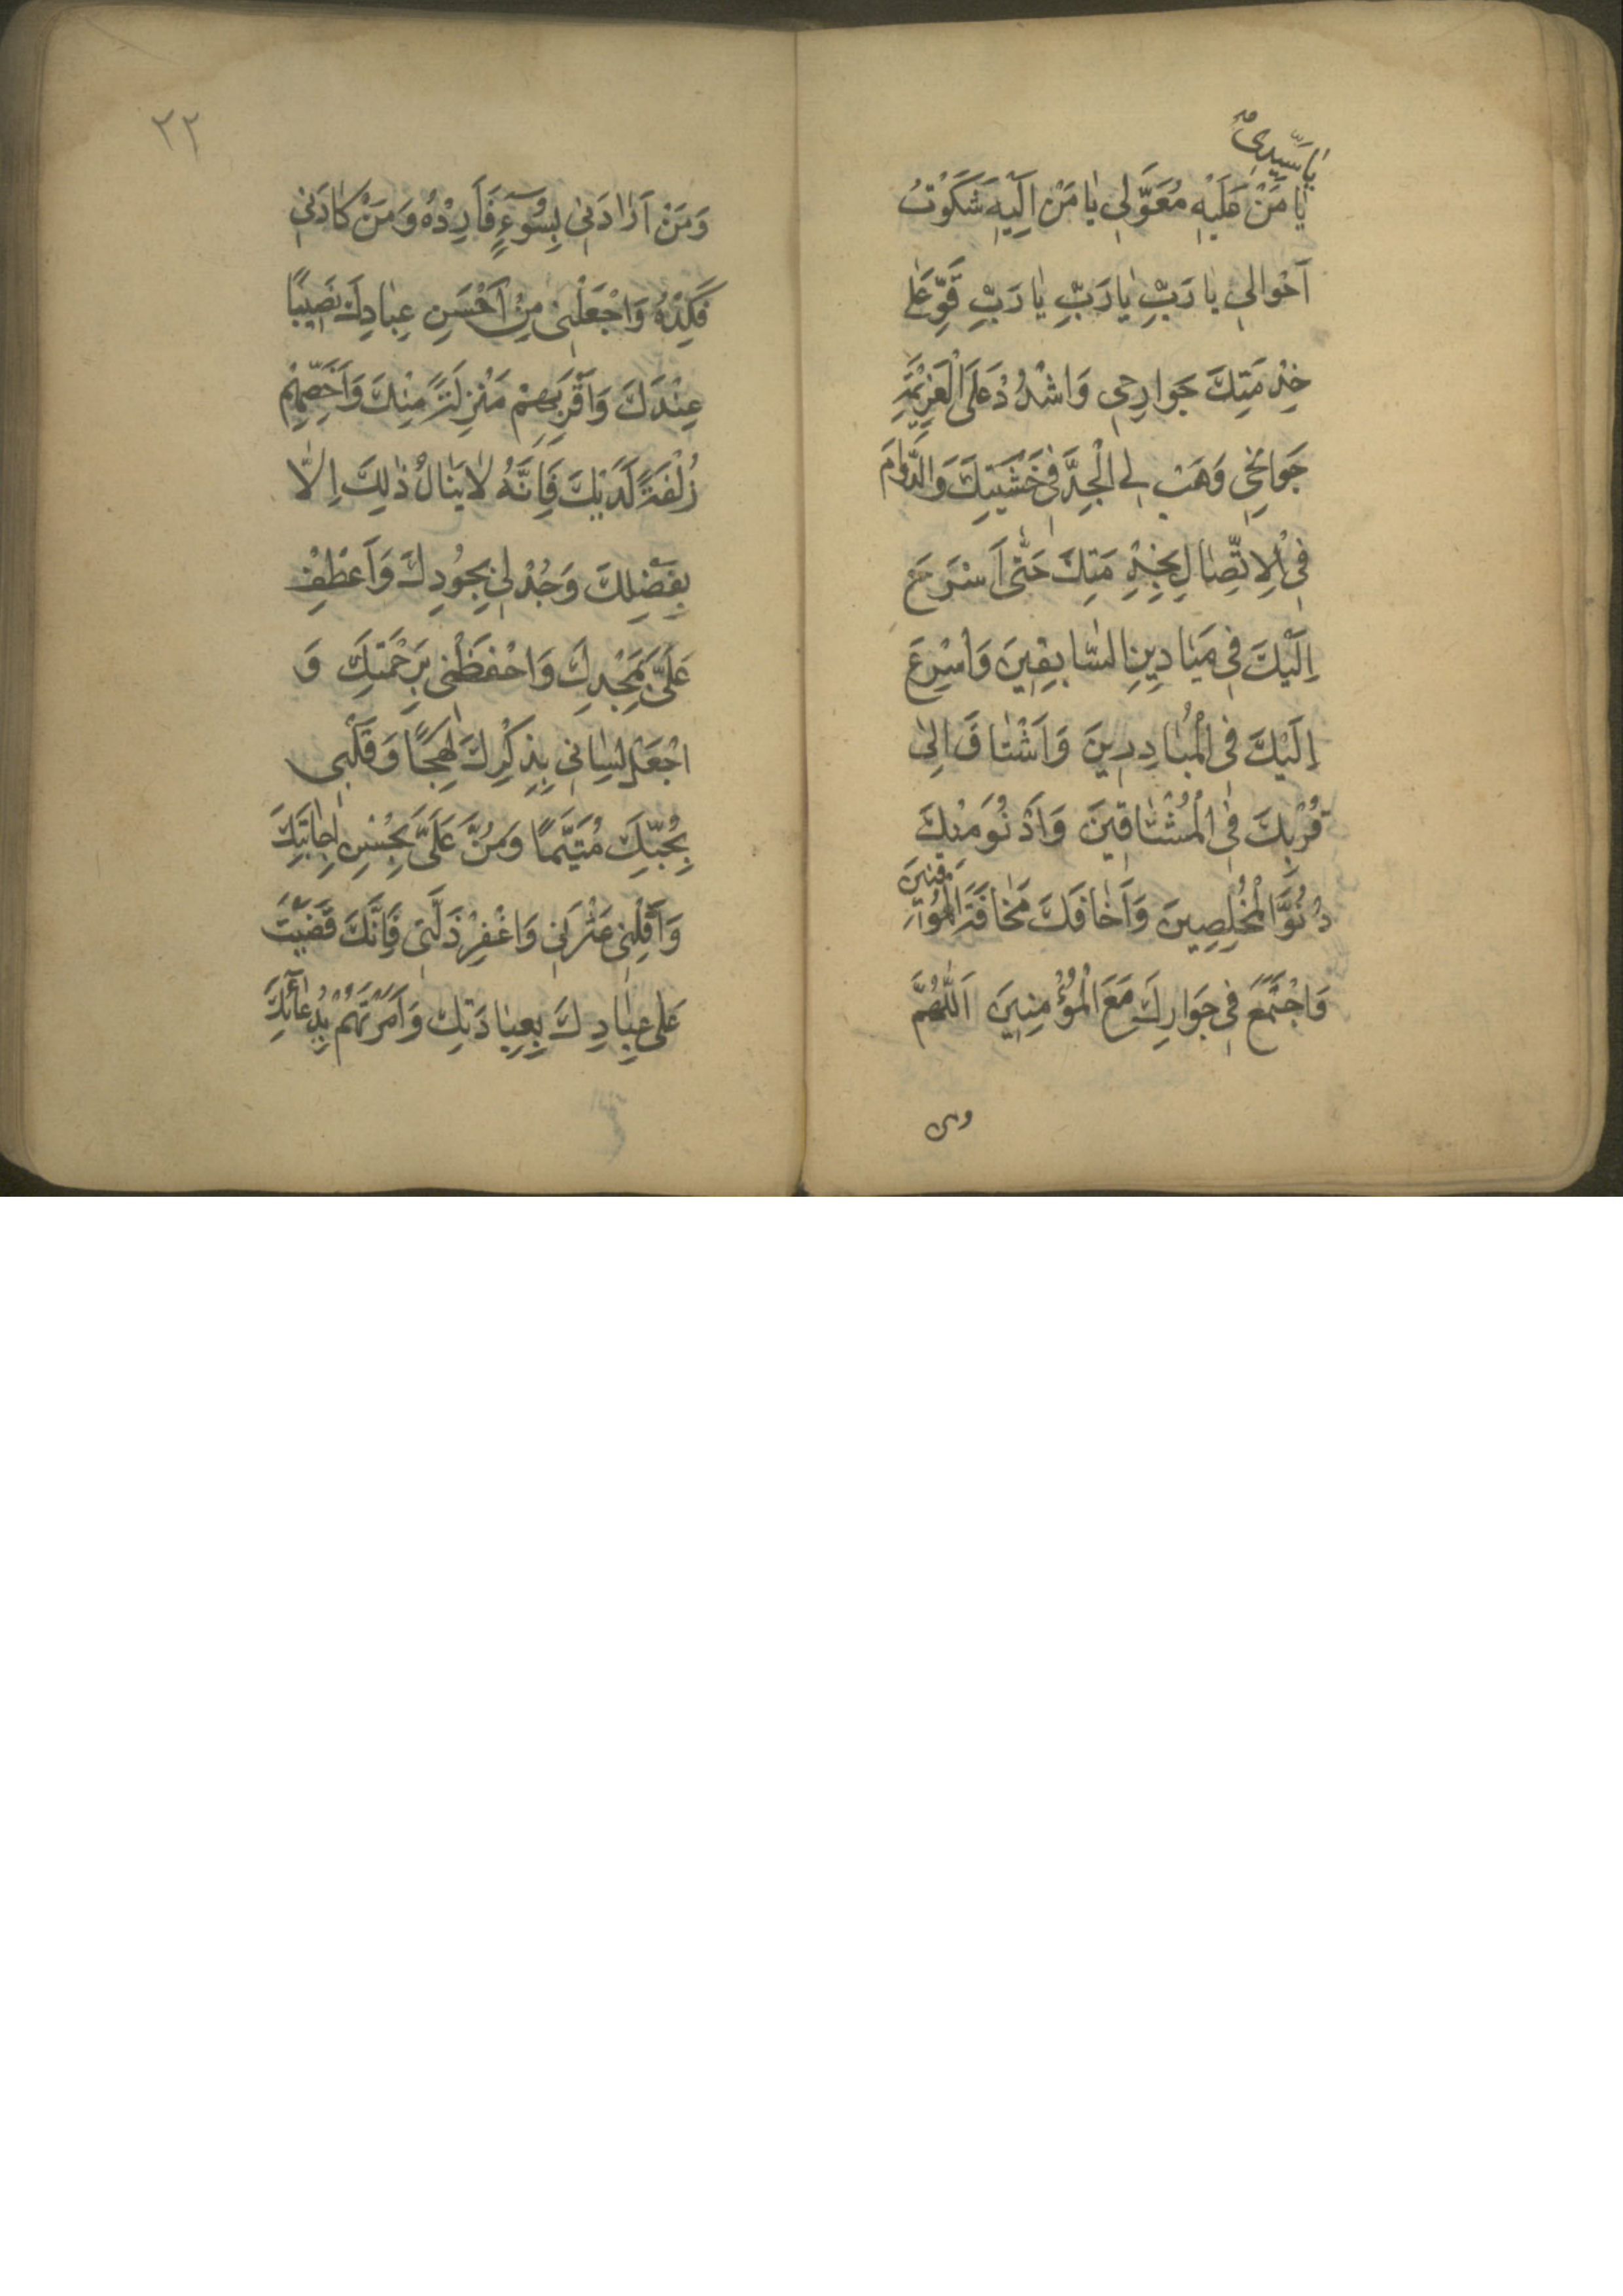 يا سَيِّدِي
يا مَنْ عَلَيْهِ مُعَوَّلِي يا مَنْ اِلَيْهِ شَكَوْتُ
اَحْوالِي يا رَبِّ يا رَبِّ يا رَبِّ قَوِّ عَلى
خِدْمَتِكَ جَوارِحِي وَاشْدُدْ عَلَى الْعَزِيمَةِ
جَوانِحِي وَهَبْ لِي الْجِدَّ فِي خَشْيَتِكَ وَالدَّوامَ
فِي الْاِتِّصالِ بِخِدْمَتِكَ حَتّى اَسْرَحَ
اِلَيْكَ فِي مَيادِينِ السّابِقِينَ وَاُسْرِعَ
اِلَيْكَ فِي الْمُبادِرِينَ وَاَشْتاقَ اِلى
قُرْبِكَ فِي الْمُشْتاقِينَ وَاَدْنُوَ مِنْكَ
دُنُوَّ الْمُخْلِصِينَ وَاَخافَكَ مَخافَةَ الْمُوقِنِينَ
وَاجْتَمِعَ فِي جَوارِكَ مَعَ الْمُؤْمِنِينَ اَللّهُمَّ
ومن
٢٢
وَمَنْ اَرادَنِي بِسُوۤءٍ فَاَرِدْهُ وَمَنْ كادَنِي
فَكِدْهُ وَاجْعَلْنِي مِنْ اَحْسَنِ عِبادِكَ نَصِيبًا
عِنْدَكَ وَاَقْرَبِهِمْ مَنْزِلَةً مِنْكَ وَاَخَصِّهِمْ
زُلْفَةً لَدَيْكَ فَاِنَّهُ لا يَنالُ ذلِكَ اِلاّ
بِفَضْلِكَ وَجُدْ لِي بِجُودِكَ وَاَعْطِفْ
عَلَيَّ بِمَجْدِكَ وَاحْفَظْنِي بِرَحْمَتِكَ وَ
اجْعَلْ لِسانِي بِذِكْرِكَ لَهِجًا وَقَلْبِي
بِحُبِّكَ مُتَيَّمًا وَمُنَّ عَلَيَّ بِحُسْنِ اِجابَتِكَ
وَاَقِلْنِي عَثْرَتِي وَاغْفِرْ ذَلَّتِي فَاِنَّكَ قَضَيْتَ
عَلى عِبادِكَ بِعِبادَتِكَ وَاَمَرْتَهُمْ بِدُعاۤئِكَ